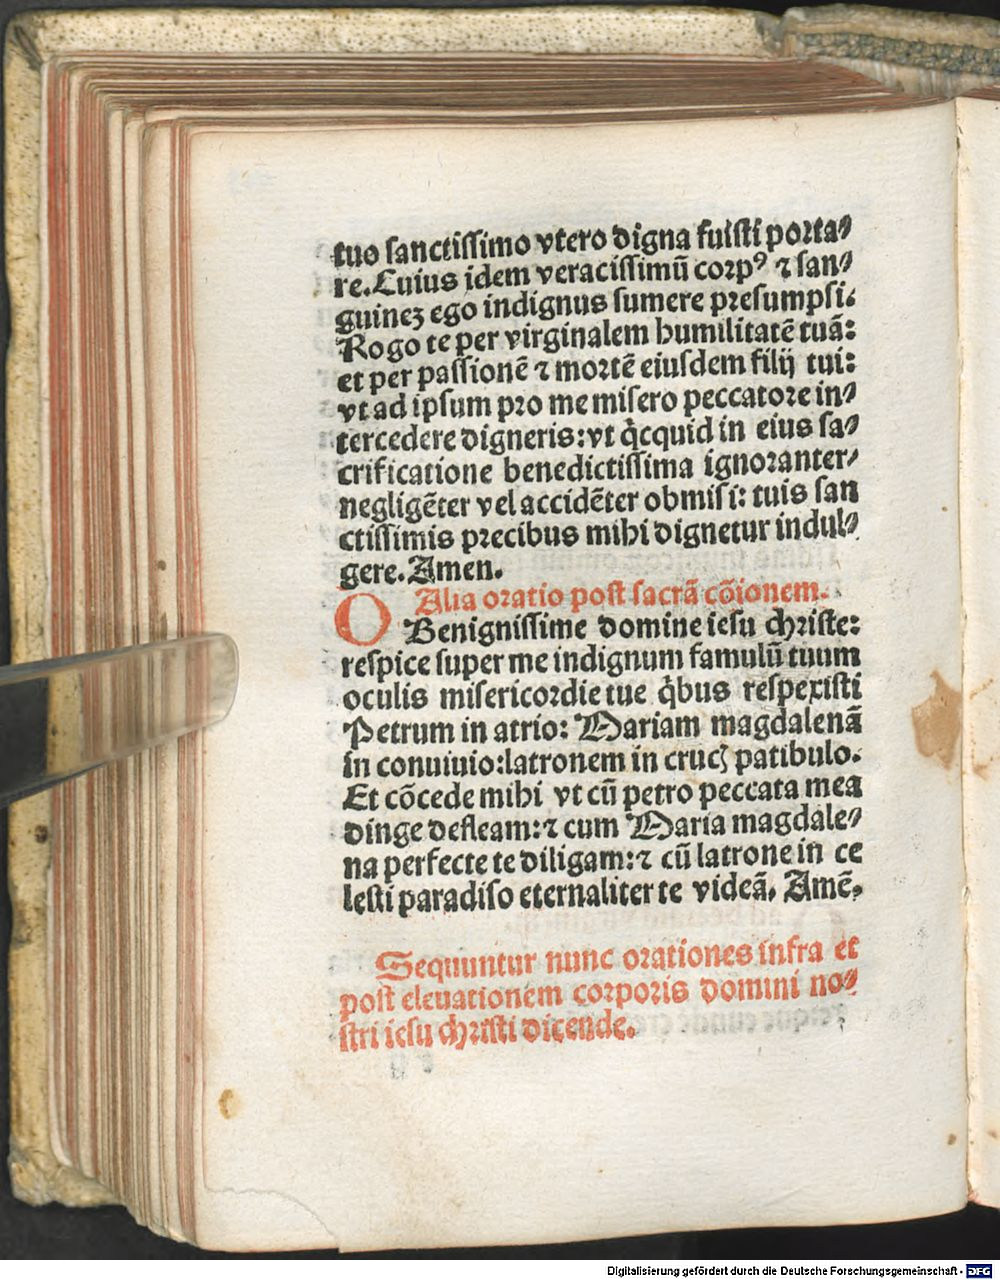 tuo sanctissimo vtero digna fuisti porta⸗
re. Cuius idem veracissimū corpꝰ ⁊ san⸗
guineꝫ ego indignus sumere presumpsi.
Rogo te per virginalem humilitatē tuā:
et per passionē ⁊ mortē eiusdem filij tui:
vt ad ipsum pro me misero peccatore in⸗
tercedere digneris: vt q̇cquid in eius sa⸗
crificatione benedictissima ignoranter⸗
negligēter vel accidēter obmisi: tuis san
ctissimis precibus mihi dignetur indul⸗
gere. Amen.
Alia oratio post sacrā cōionem.
O Benignissime domine iesu christe:
respice super me indignum famulū tuum
oculis misericordie tue q̇bus respexisti
Petrum in atrio: Mariam magdalenā
in conuiuio: latronem in cruc̨ patibulo.
Et cōcede mihi vt cū petro peccata mea
dinge defleam: ⁊ cum Maria magdale⸗
na perfecte te diligam: ⁊ cū latrone in ce
lesti paradiso eternaliter te videā. Amē.
Sequuntur nunc orationes infra et
post eleuationem corporis domini no⸗
stri iesu christi dicende.
Digitalisierung gefördert durch die Deutsche Forschungsgemeinschaft - DFG